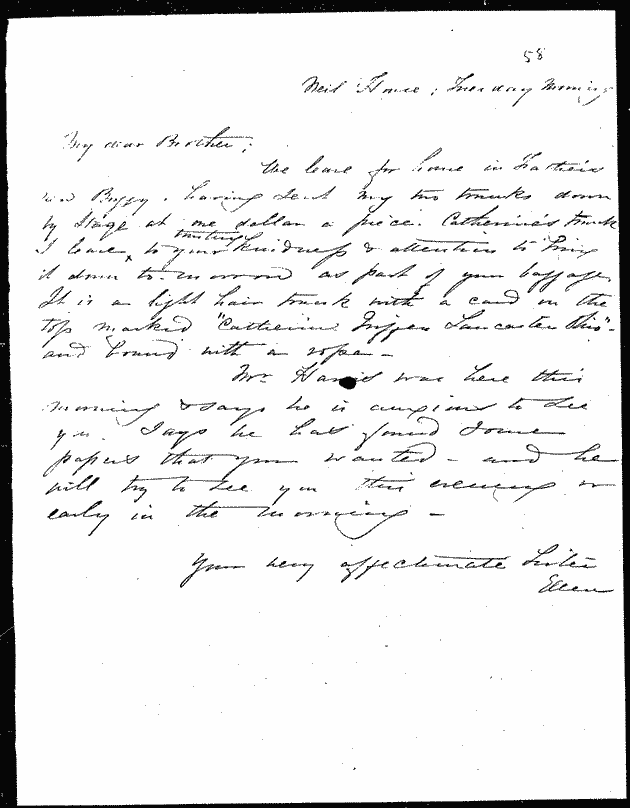 58
Neil House, Tuesday Morning
My dear Brother;
We leave for home in Father's
Buggy, having sent my two trunks down
by Stage at one dollar a piece. Catherine's trunk
I leave, trusting to your kindness & attention to bring
it down to-morrow as part of your baggage.
It is a light hair trunk with a card on the
top marked "Catherine Lancaster Ohio"-
and bound with a rope-
Mr. Harris was here this
morning & says he is anxious to see
you. Says he has found some
papers that you wanted - and he
will try to see you this evening or
early in the morning -
Your very affectionate Sister
Ellen